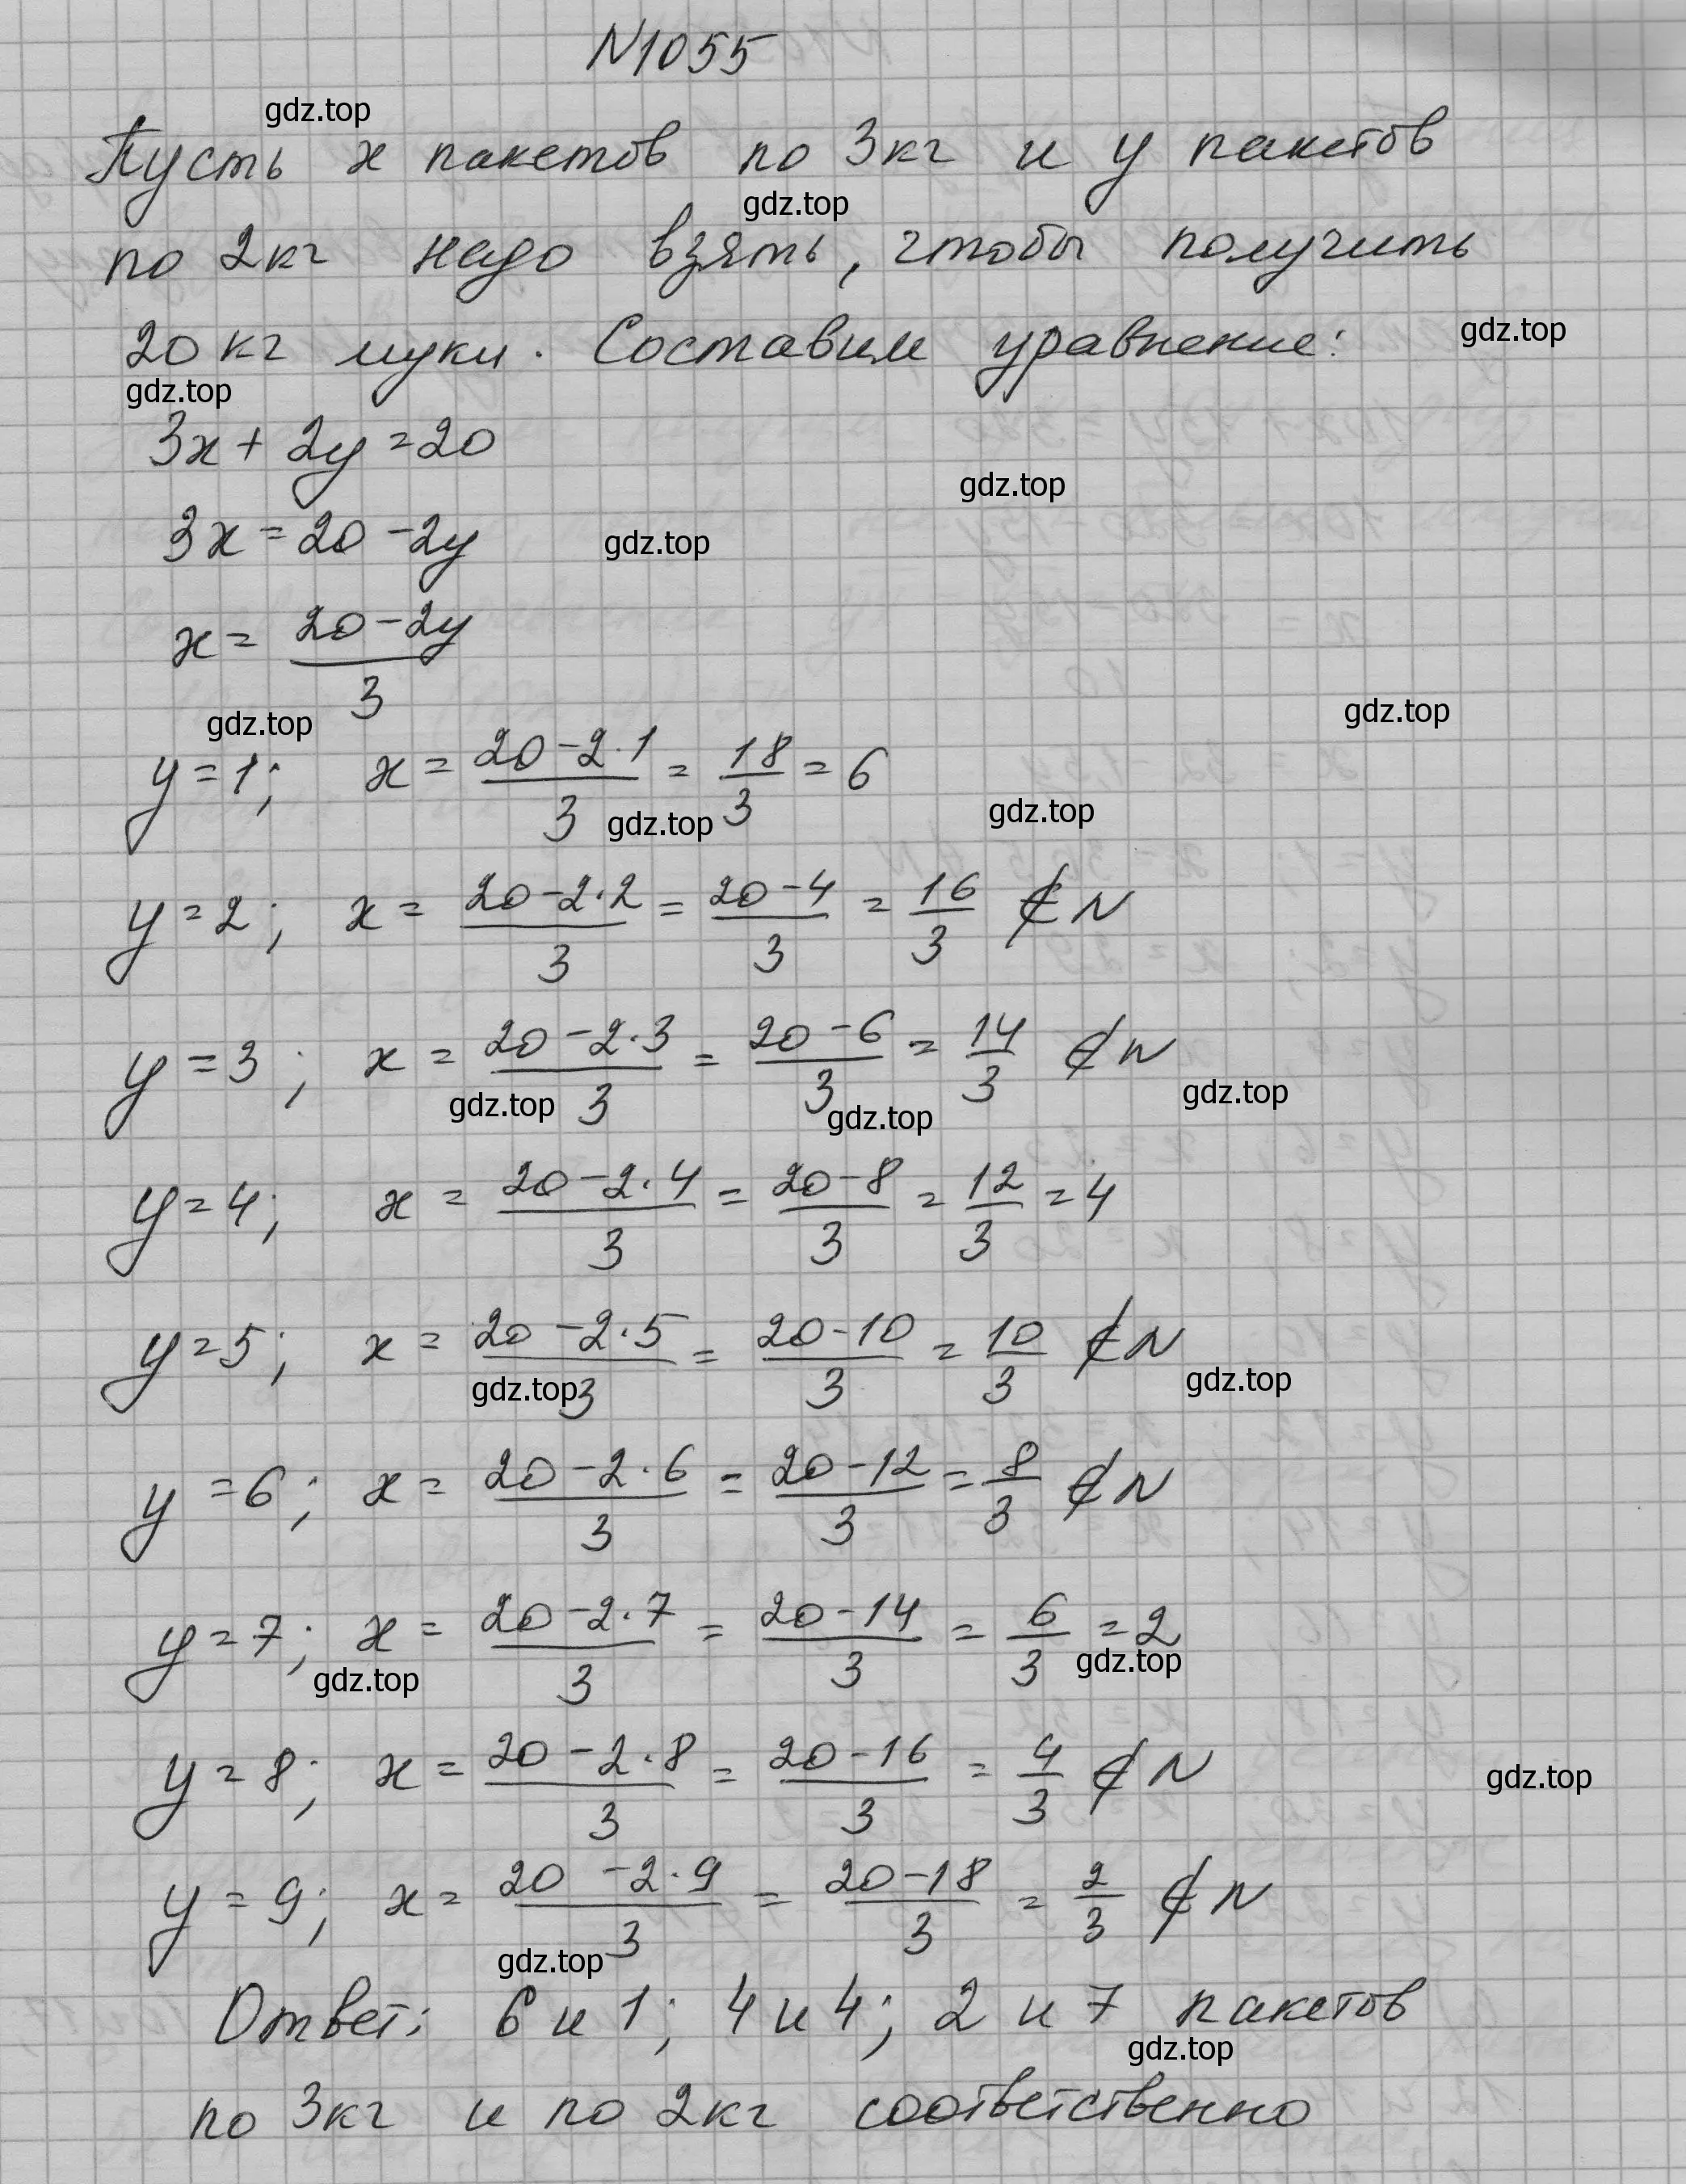 N1055
gdz.top
Пусть x пакетов по 3кг и y пакетов
gdz.top
по 2кг надо взять, чтобы получить
20кг муки. Составим уравнение:
gdz.top
gdz.top
3x + 2y = 20
gdz.top
3x = 20 - 2y
gdz.top
x = (20 - 2y)/3
gdz.top
gdz.top
y = 1; x = (20 - 2·1)/3 = 18/3 = 6
gdz.top
gdz.top
y = 2; x = (20 - 2·2)/3 = (20 - 4)/3 = 16/3 ∉ N
y = 3; x = (20 - 2·3)/3 = (20 - 6)/3 = 14/3 ∉ N
gdz.top
gdz.top
gdz.top
y = 4; x = (20 - 2·4)/3 = (20 - 8)/3 = 12/3 = 4
y = 5; x = (20 - 2·5)/3 = (20 - 10)/3 = 10/3 ∉ N
gdz.top
gdz.top
y = 6; x = (20 - 2·6)/3 = (20 - 12)/3 = 8/3 ∉ N
y = 7; x = (20 - 2·7)/3 = (20 - 14)/3 = 6/3 = 2
gdz.top
gdz.top
y = 8; x = (20 - 2·8)/3 = (20 - 16)/3 = 4/3 ∉ N
gdz.top
y = 9; x = (20 - 2·9)/3 = (20 - 18)/3 = 2/3 ∉ N
gdz.top
Ответ: 6 и 1; 4 и 4; 2 и 7 пакетов
gdz.top
по 3кг и по 2кг соответственно